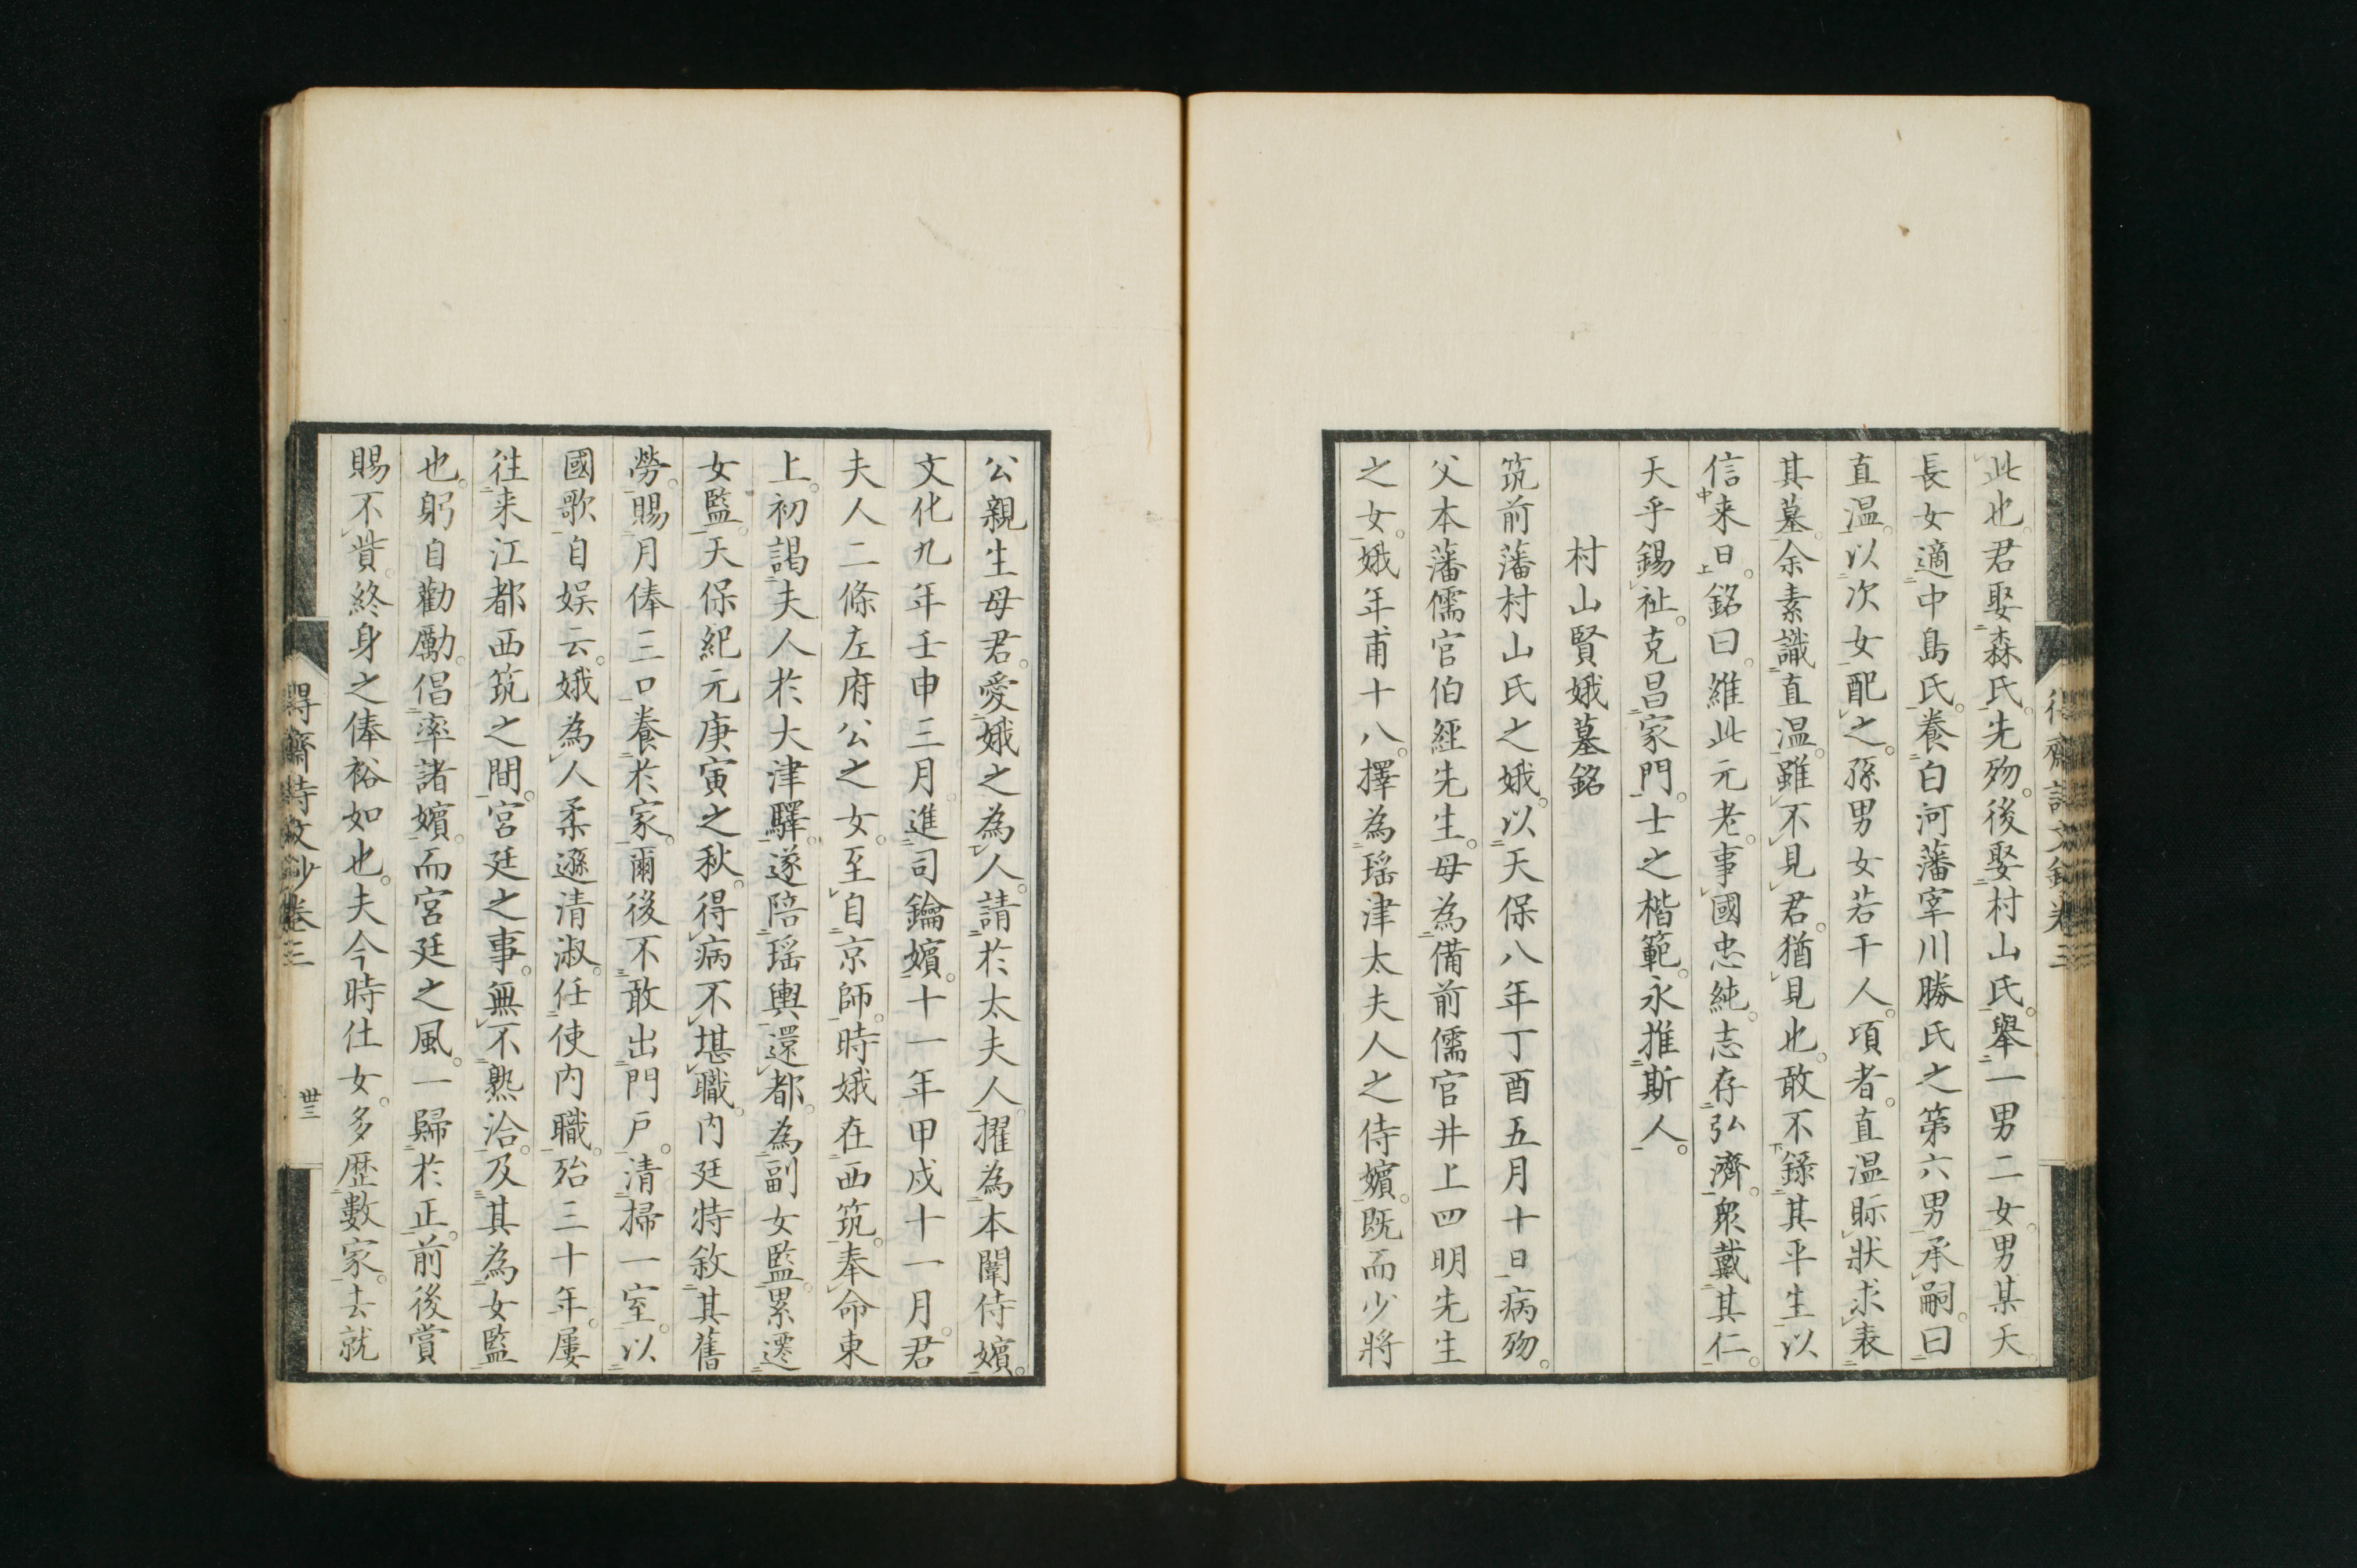 此也。君娶森氏。先歾。後娶村山氏。舉一男二女。男某夭。
長女適中島氏。養白河藩宰川勝氏之第六男承嗣。曰
直温。以次女配之。孫男女若干人。頃者。直温眎狀求表
其墓。余素識直温。雖不見君。猶見也。敢不錄其平生以
信来日。銘曰。維此元老。事國忠純。志存弘濟。衆戴其仁。
天乎錫祉。克昌家門。士之楷範。永推斯人。
村山賢娥墓銘
筑前藩村山氏之娥。以天保八年丁酉五月十日病歾。
父本藩儒官伯經先生。母為備前儒官井上四明先生
之女。娥年甫十八。擇為瑶津太夫人之侍嬪。既而少將
公親生母君。愛娥之為人。請於太夫人。擢為本闈侍嬪。
文化九年壬申三月。進司鑰嬪。十一年甲戌十一月。君
夫人二條左府公之女。至自京師。時娥在西筑。奉命東
上。初謁夫人於大津驛。遂陪瑶輿還都。為副女監。累遷
女監。天保紀元庚寅之秋。得病不堪職。内廷特敘其舊
勞。賜月俸三口。養於家。爾後不敢出門戶。清掃一室。以
國歌自娱云。娥為人柔遜清淑。任使内職。殆三十年。屢
往来江都西筑之間。宮廷之事。無不熟洽。及其為女監
也。躬自勸勵。倡率諸嬪。而宮廷之風。一歸於正。前後賞
賜不貲。終身之俸裕如也。夫今時仕女。多歷數家。去就
得齋詩文鈔卷三
卅三